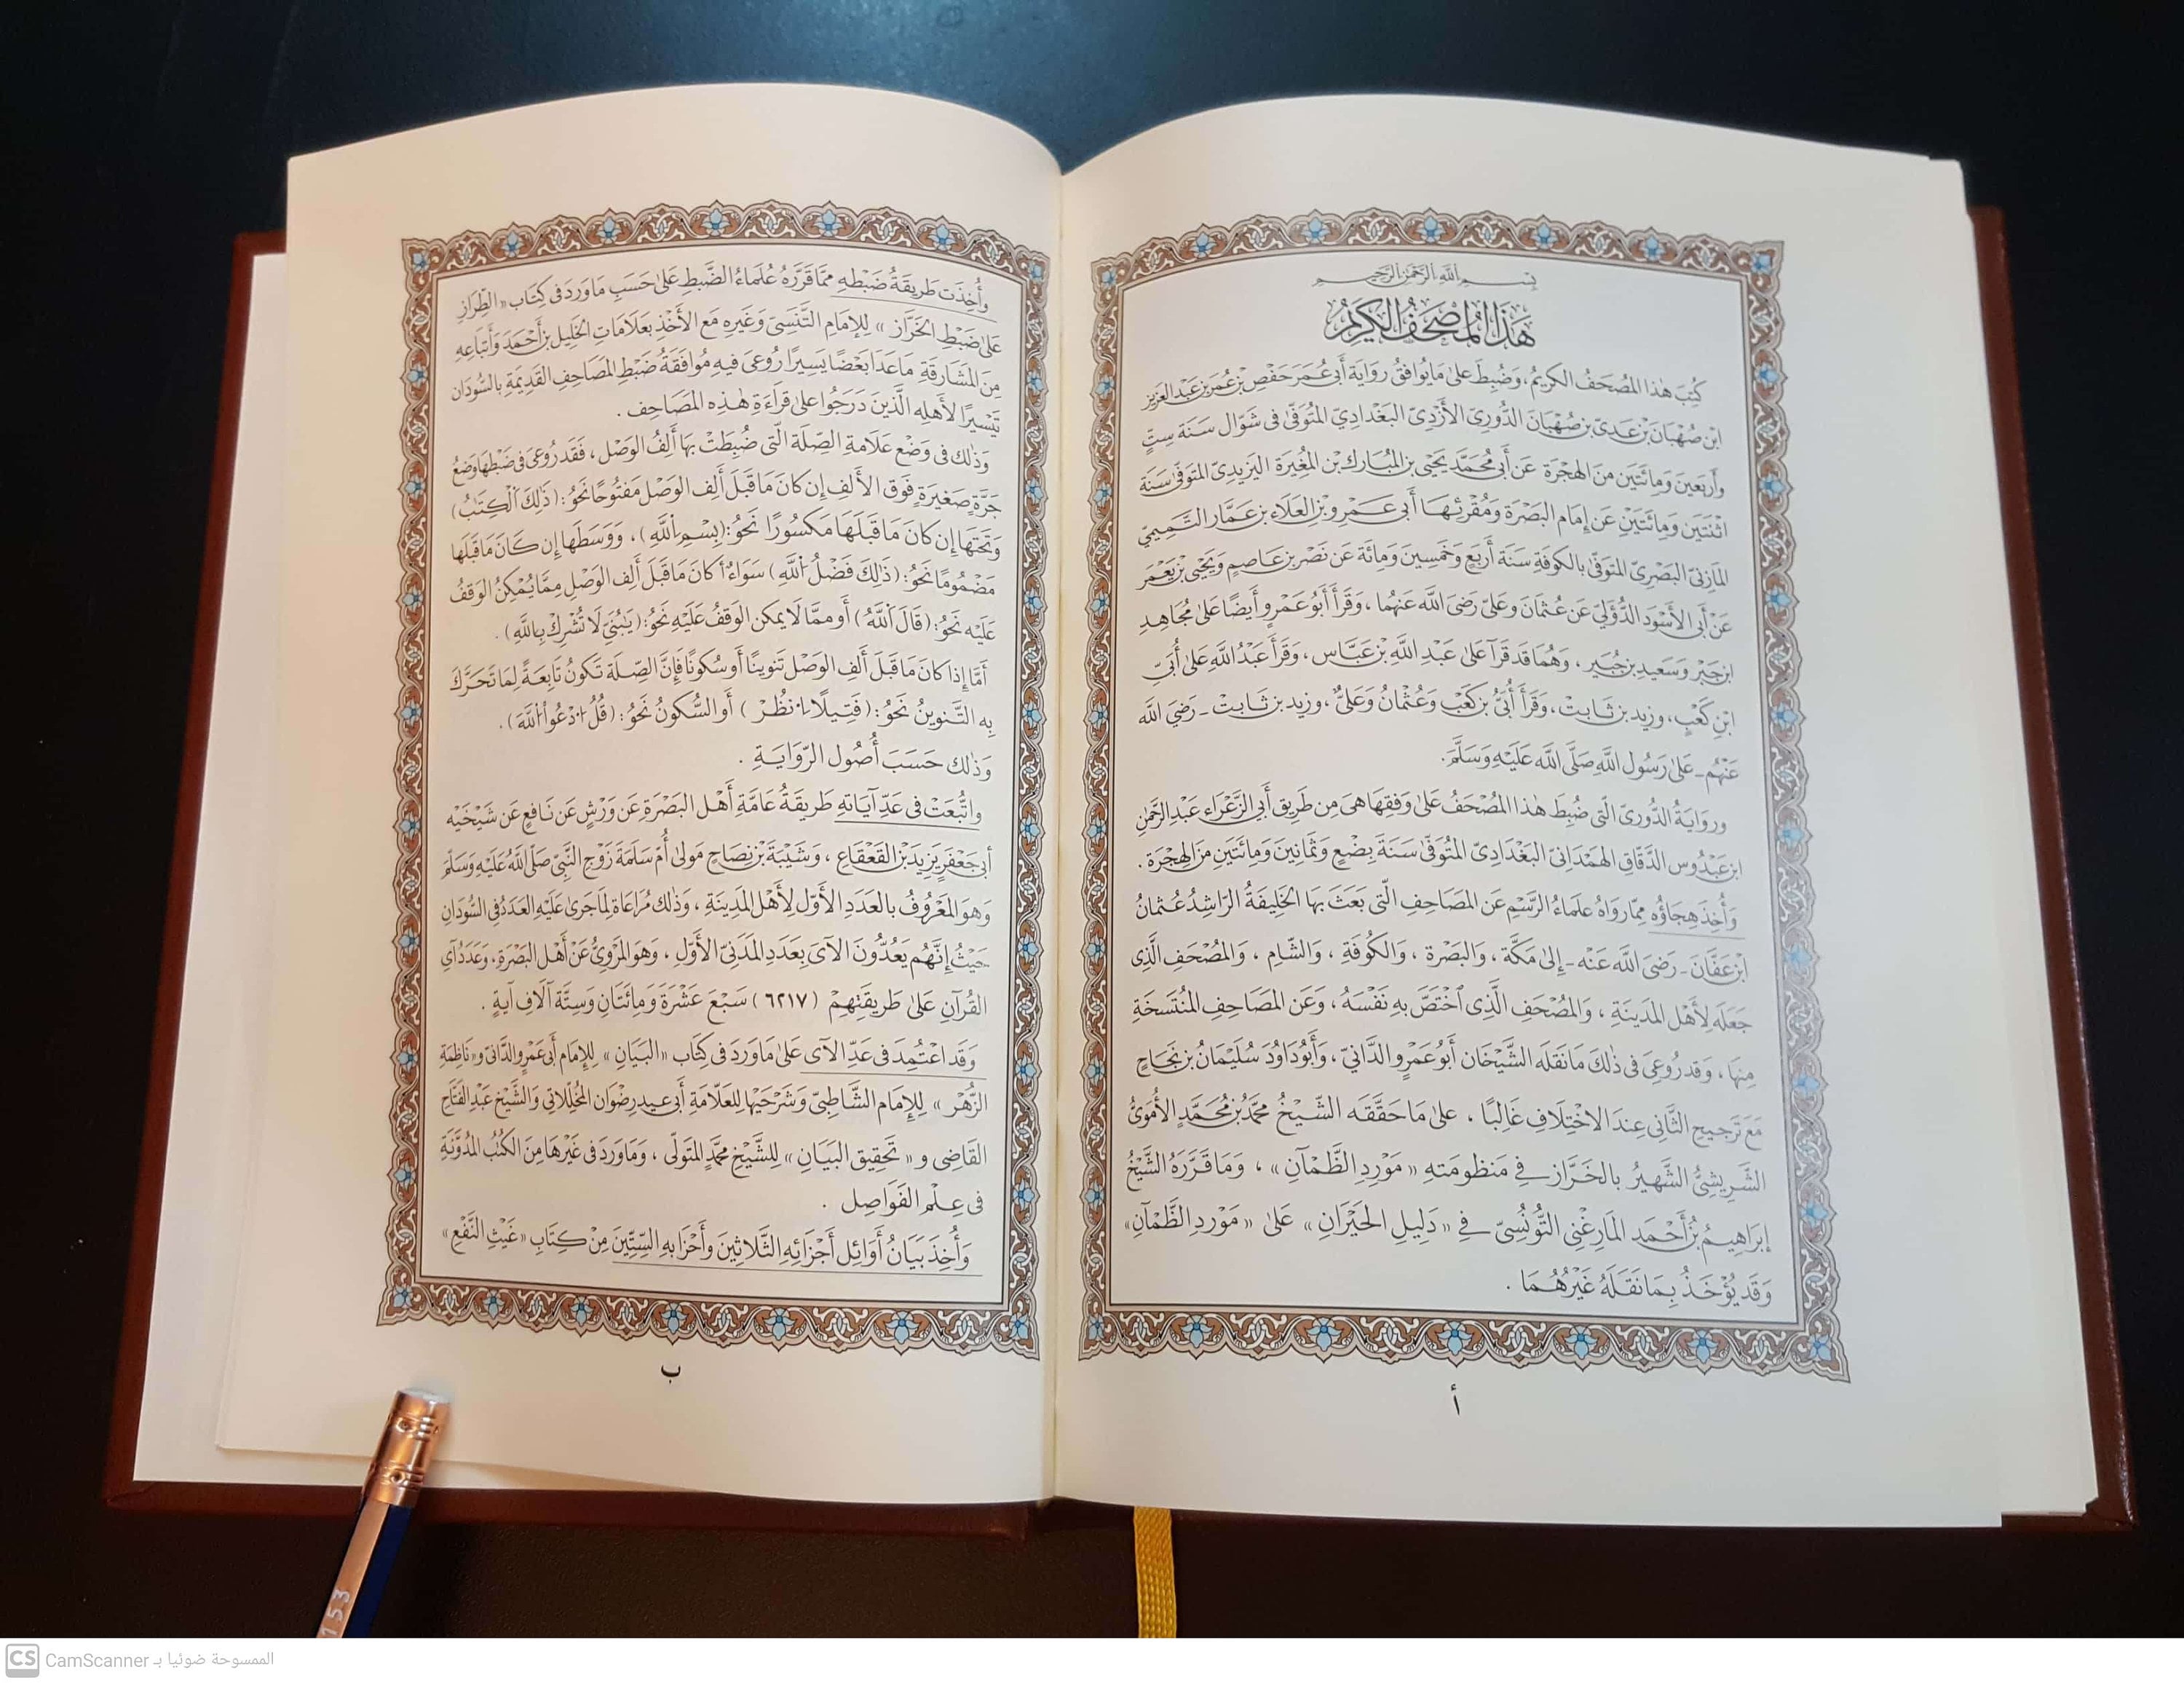 بِسْمِ اللَّهِ الرَّحْمٰنِ الرَّحِيمِ
هَذَا المُصْحَفُ الكَرِيمُ
كُتِبَ هٰذا المُصْحَفُ الكريمُ، وَضُبِطَ عَلىٰ مَا يُوَافِقُ رِوَايَةَ أَبِى عُمَرَ حَفْصِ بْنِ عُمَرَ بنِ عَبْدِ العَزِيزِ
ابْنِ صُهْبَانَ بْنِ عَدِىِّ بنِ صُهْبَانَ الدُّورِىِّ الأَزْدِىِّ البَغْدَادِيِّ المُتَوَفَّىٰ فى شَوَّال سَنَةَ سِتٍّ
وأَربَعِينَ وَمِائَتَين مِنَ الهِجْرَة عَن أَبِى مُحَمَّدٍ يَحْيَىٰ بنِ المُبَارَكِ بْنِ المُغِيرَةِ اليَزِيدِىِّ المُتَوَفَّىٰ سَنَةَ
اثْنَتَينِ وَمِائَتَيْنِ عَن إِمَامِ البَصْرَة وَمُقْرِئِهَا أَبِى عَمْرِو بْنِ العَلَاءِ بنِ عَمَّارٍ التَّمِيمِيِّ
المَازِنِىِّ البَصْرِىِّ المُتَوَفَّىٰ بِالكُوفَةِ سَنَةَ أَرْبَعٍ وَخَمْسِينَ وَمِائَة عَن نَصْرِ بنِ عَاصِمٍ وَيَحْيَىٰ بنِ يَعْمَرَ
عَنْ أَبِى الأَسْوَدِ الدُّؤَلِيِّ عَن عُثْمَانَ وَعَلِىٍّ رَضِىَ اللَّه عَنهُمَا، وَقَرَأَ أَبُو عَمْرٍو أَيضًا عَلىٰ مُجَاهِدِ
ابنِ جَبْرٍ وَسَعِيدِ بنِ جُبَيرٍ، وَهُمَا قَد قَرَآ عَلىٰ عَبْدِ اللَّهِ بنِ عَبَّاسٍ، وَقَرَأَ عَبْدُ اللَّهِ عَلىٰ أُبَىِّ
ابْنِ كَعْبٍ، وزيد بن ثَابِت، وَقَرَأَ أُبَىُّ بنُ كَعْبٍ وَعُثْمَانُ وَعَلِىٌّ، وزيد بن ثَابِت ـ رَضِىَ اللَّه
عَنْهُم ـ عَلىٰ رَسُول اللَّهِ صَلَّى اللَّه عَلَيْهِ وَسَلَّمَ.
ورِوَايَةُ الدُّورِىِّ الَّتِى ضُبِطَ هٰذا المُصْحَفُ عَلىٰ وَفْقِهَا هِىَ مِن طَرِيقِ أَبِى الزَّعْرَاءِ عَبْدِ الرَّحْمٰنِ
ابنِ عَبْدُوسٍ الدَّقَّاقِ الهَمْدَانِىِّ البَغْدَادِىِّ المُتَوَفَّىٰ سَنَةَ بِضْعٍ وَثَمَانِينَ وَمِائَتَينِ مِنَ الهِجْرَةِ.
وَأُخِذَ هِجَاؤُه مِمَّا رَوَاهُ عُلَمَاءُ الرَّسْمِ عَنِ المَصَاحِفِ الَّتِى بَعَثَ بِهَا الخَلِيفَةُ الرَّاشِدُ عُثْمَانُ
ابْنُ عَفَّانَ ـ رَضِىَ اللَّه عَنْه ـ إِلىٰ مَكَّةَ، وَالبَصْرَةِ، وَالكُوفَةِ، وَالشَّامِ، وَالمُصْحَفِ الَّذِى
جَعَلَه لِأَهْلِ المَدِينَةِ، وَالمُصْحَفِ الَّذِى اخْتَصَّ بِهِ نَفْسَهُ، وَعَنِ المَصَاحِفِ المُنْتَسَخَةِ
مِنْهَا، وَقَد رُوعِىَ فى ذٰلكَ مَا نَقَلَه الشَّيْخَان أَبُو عَمْرٍو الدَّانِىّ، وَأَبُو دَاوُدَ سُلَيْمَانُ بنُ نَجَاحٍ
مَعَ تَرجِيحِ الثَّانِى عِندَ الاخْتِلَافِ غَالِبًا، عَلىٰ مَا حَقَّقَه الشَّيْخُ مُحَمَّدُ بنُ مُحَمَّدٍ الأُمَوِىُّ
الشَّرِيشِىُّ الشَّهِيرُ بالخَرَّازِ فِي مَنظُومَتِهِ «مَوْرِدِ الظَّمْآنِ»، وَمَا قَرَّرَهُ الشَّيْخُ
إِبْرَاهِيمُ بْنُ أَحْمَدَ المَارِغْنِى التُّونُسِىّ فِي «دَلِيلِ الحَيْرَانِ» عَلىٰ «مَوْرِدِ الظَّمْآنِ»
وَقَد يُؤْخَذُ بِمَا نَقَلَهُ غَيْرُهُمَا.
أ
وأُخِذَت طَرِيقَةُ ضَبْطِهِ مِمَّا قَرَّرَهُ عُلَمَاءُ الضَّبْطِ عَلىٰ حَسَبِ مَا وَرَدَ فى كِتَاب «الطِّرَازِ
عَلىٰ ضَبْطِ الخَرَّازِ» لِلإِمَامِ التَّنَسِىِّ وَغَيرِهِ مَعَ الأَخْذِ بِعَلَامَاتِ الخَلِيلِ بنِ أَحْمَدَ وَأَتْبَاعِهِ
مِنَ المَشَارِقَةِ مَا عَدَا بَعْضًا يَسِيرًا رُوعِىَ فِيهِ مُوَافَقَةُ ضَبْطِ المَصَاحِفِ القَدِيمَةِ بِالسُّودَانِ
تَيْسِيرًا لأَهلِه الَّذِينَ دَرَجُوا عَلىٰ قِرَاءَةِ هٰذِه المَصَاحِفِ.
وَذٰلك فى وَضْعِ عَلَامَةِ الصِّلَةِ الَّتِى ضُبِطَتْ بِهَا أَلِفُ الوَصْلِ، فَقَد رُوعِىَ فى ضَبْطِهَا وَضْعُ
جَرَّةٍ صَغِيرَةٍ فَوقَ الأَلِفِ إِن كَانَ مَا قَبلَ أَلِفِ الوَصْلِ مَفْتُوحًا نَحْوُ: (ذَٰلِكَ ٱلْكِتَٰبُ)
وَتَحْتَهَا إِن كَانَ مَا قَبلَهَا مَكْسُورًا نَحْوُ: (بِسْمِ ٱللَّهِ)، وَوَسَطَهَا إِن كَانَ مَا قَبْلَهَا
مَضْمُومًا نَحْوُ: (ذَٰلِكَ فَضْلُ ٱللَّهِ) سَوَاءٌ أَكَانَ مَا قَبلَ أَلِفِ الوَصْلِ مِمَّا يُمْكِنُ الوَقفُ
عَلَيْهِ نَحْوُ: (قَالَ ٱللَّهُ) أَو مِمَّا لَا يمكن الوَقفُ عَلَيْهِ نَحْوُ: (يَٰبُنَىِّ لَا تُشْرِكْ بِٱللَّهِ).
أَمَّا إِذَا كَانَ مَا قَبلَ أَلِفِ الوَصْلِ تَنوِينًا أَو سُكُونًا فَإِنَّ الصِّلَةَ تَكُونُ تَابِعَةً لِمَا تَحَرَّكَ
بِهِ التَّنوِينُ نَحْوُ: (فَتِيلًا ٱنظُرْ) أَو السُّكُونُ نَحْوُ: (قُلُ ٱدْعُوا۟ ٱللَّهَ).
وَذٰلك حَسَبَ أُصُول الرِّوَايَةِ.
واتُّبِعَتْ فى عَدِّ آيَاتِهِ طَرِيقَةُ عَامَّةِ أَهْلِ البَصْرَةِ عَن وَرْشٍ عَن نَافِعٍ عَن شَيْخَيْه
أَبِى جَعْفَرٍ يَزِيدَ بْنِ القَعْقَاعِ، وَشَيْبَةَ بْنِ نِصَاحٍ مَولىٰ أُمِّ سَلَمَةَ زَوْجِ النَّبِىِّ صَلَّى اللَّهُ عَلَيْهِ وَسَلَّمَ
وَهوَ المَعْرُوفُ بالعَدَدِ الأَوَّلِ لِأَهْلِ المَدِينَةِ، وَذٰلك مُرَاعَاة لِمَا جَرىٰ عَلَيْهِ العَدَدُ فى السُّودَانِ
حَيْثُ إِنَّهُم يَعُدُّونَ الآىَ بِعَدَدِ المَدَنِىِّ الأَوَّلِ، وَهوَ المَرْوِىُّ عَنْ أَهْلِ البَصْرَةِ، وَعَدَدُ آىِ
القُرآنِ عَلىٰ طَرِيقَتِهِمْ (٦٢١٧) سَبْعَ عَشْرَةَ وَمِائَتَانِ وَسِتَّة آلَافِ آيَةٍ.
وَقَد اعْتُمِدَ فى عَدِّ الآى عَلىٰ مَا وَرَدَ فى كِتَابِ «البَيَانِ» لِلإِمَامِ أَبِى عَمْرٍو الدَّانِىِّ و«نَاظِمَةِ
الزُّهْرِ» لِلإِمَامِ الشَّاطِبِىِّ وَشَرْحَيْهَا لِلعَلَّامَةِ أَبِى عِيدٍ رِضْوَانَ المُخَلِّلَاتِى وَالشَّيْخِ عَبْدِ الفَتَّاحِ
القَاضِى و«تَحقِيقِ البَيَانِ» لِلشَّيْخِ مُحَمَّدٍ المُتَوَلِّى، وَمَا وَرَدَ فى غَيْرِهَا مِنَ الكُتُبِ المُدَوَّنَةِ
فى عِلْمِ الفَوَاصِلِ.
وَأُخِذَ بَيَانُ أَوَائِلِ أَجْزَائِهِ الثَّلَاثِينَ وَأَحْزَابِهِ السِّتِّينَ مِنْ كِتَابِ «غَيْثِ النَّفْعِ»
ب
153
CS CamScanner الممسوحة ضوئيا بـ